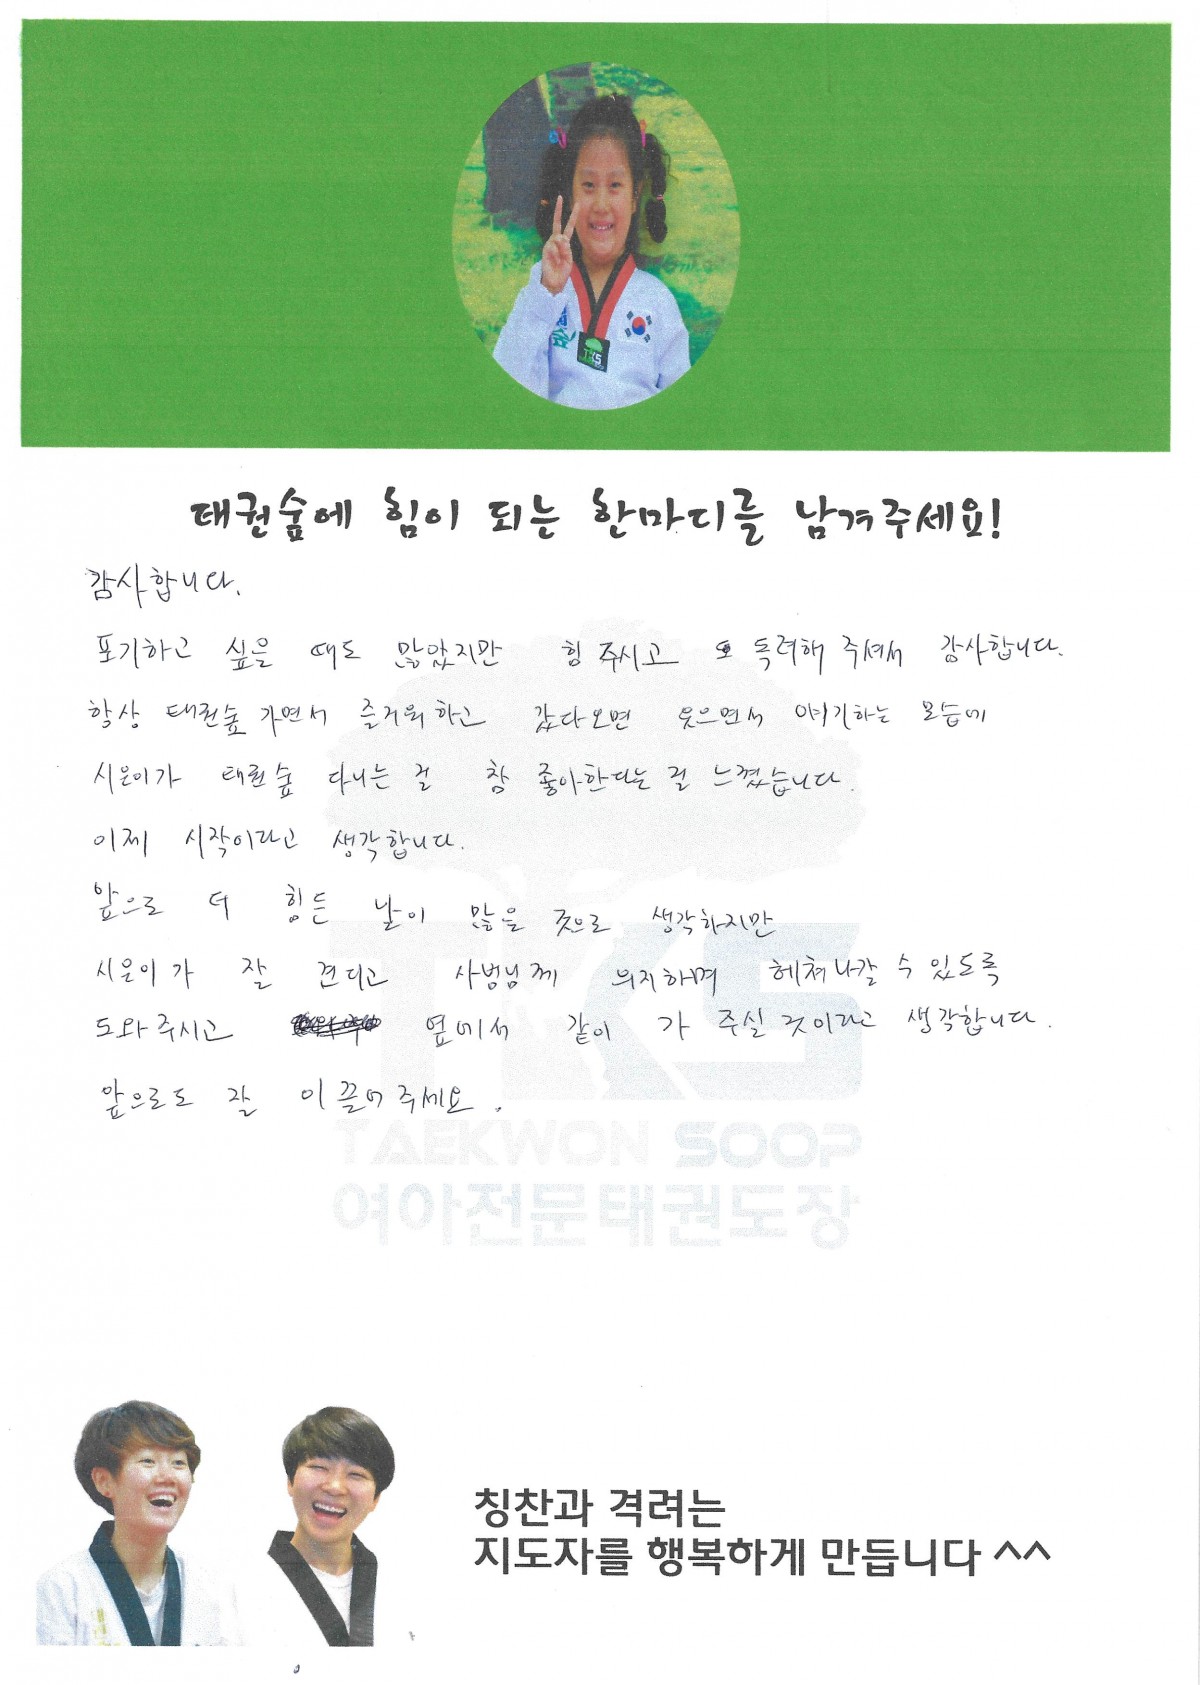 태권숲에 힘이 되는 한마디를 남겨주세요!
감사합니다.
포기하고 싶을 때도 많았지만 힘 주시고 또 독려해 주셔서 감사합니다.
항상 태권숲 가면서 즐거워하고 갔다오면 웃으면서 얘기하는 모습에
시은이가 태권숲 다니는 걸 참 좋아한다는 걸 느꼈습니다.
이제 시작이라고 생각합니다.
앞으로 더 힘든 날이 많을 것으로 생각하지만
시은이가 잘 견디고 사범님께 의지하며 헤쳐나갈 수 있도록
도와주시고 옆에서 같이 가 주실 것이라고 생각합니다.
앞으로도 잘 이끌어 주세요.
TKS
TAEKWON SOOP
여아전문태권도장
칭찬과 격려는
지도자를 행복하게 만듭니다 ^^